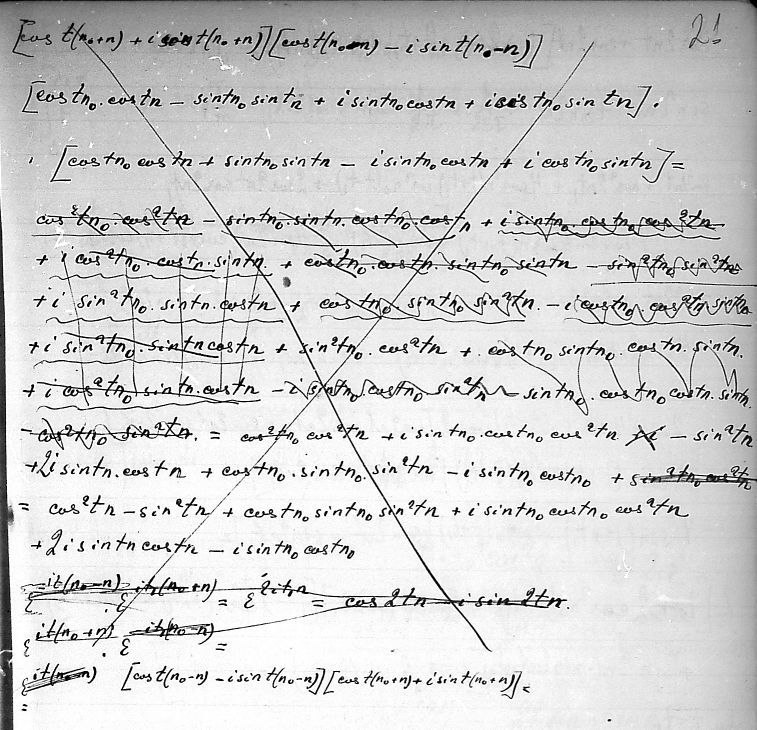 21
[cos t(n₀+n) + i sin t(n₀+n)][cos t(n₀-n) - i sin t(n₀-n)]
[cos tn₀. cos tn - sin tn₀ sin tn + i sin tn₀ cos tn + i cos tn₀ sin tn].
. [cos tn₀ cos tn + sin tn₀ sin tn - i sin tn₀ cos tn + i cos tn₀ sin tn] =
cos²tn₀. cos²tn - sin tn₀. sin tn. cos tn₀. cos tn + i sin tn₀. cos tn₀ cos²tn
+ i cos²tn₀. cos tn. sin tn + cos tn₀. cos tn. sin tn₀ sin tn - sin²tn₀ sin²tn
+ i sin²tn₀. sin tn. cos tn + cos tn₀. sin tn₀ sin²tn - i cos tn₀. cos²tn sin tn₀
+ i sin²tn₀. sin tn cos tn + sin²tn₀. cos²tn + cos tn₀ sin tn₀. cos tn. sin tn.
+ i cos²tn₀ sin tn. cos tn - i sin tn₀ cos tn₀ sin²tn - sin tn₀. cos tn₀ cos tn. sin tn.
- cos²tn₀ sin²tn. = cos²tn₀ cos²tn + i sin tn₀. cos tn₀ cos²tn - sin²tn
+ 2i sin tn. cos tn + cos tn₀. sin tn₀. sin²tn - i sin tn₀ cos tn₀ + sin²tn₀ cos²tn
= cos²tn - sin²tn + cos tn₀ sin tn₀ sin²tn + i sin tn₀ cos tn₀ cos²tn
+ 2i sin tn cos tn - i sin tn₀ cos tn₀
ε^{-it(n₀-n)}. ε^{it(n₀+n)} = ε^{2itn} = cos 2tn - i sin 2tn.
ε^{it(n₀+n)}. ε^{-it(n₀-n)} =
ε^{it(n₀-n)} [cos t(n₀-n) - i sin t(n₀-n)][cos t(n₀+n) + i sin t(n₀+n)] =
=